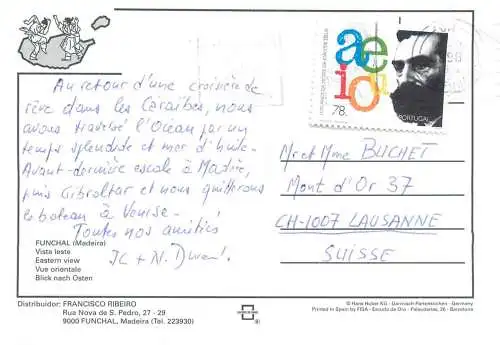 Au retour d'une croisière de
rêve dans les Caraïbes, nous
avons traversé l'Océan par un
temps splendide et mer d'huile.
Avant-dernière escale à Madère,
puis Gibraltar et nous quitterons
le bateau à Venise.
Toutes nos amitiés
JC + N.
FUNCHAL (Madeira)
Vista leste
Eastern view
Vue orientale
Blick nach Osten
Distribuidor: FRANCISCO RIBEIRO
Rua Nova de S. Pedro, 27 - 29
9000 FUNCHAL, Madeira (Tel. 223930)
a e
i o u
78.
PORTUGAL
Mr et Mme BUCHET
Mont d'Or 37
CH-1007 LAUSANNE
SUISSE
© Hans Huber KG - Garmisch-Partenkirchen - Germany
Printed in Spain by FISA - Escudo de Oro - Palaudarias, 26 - Barcelona